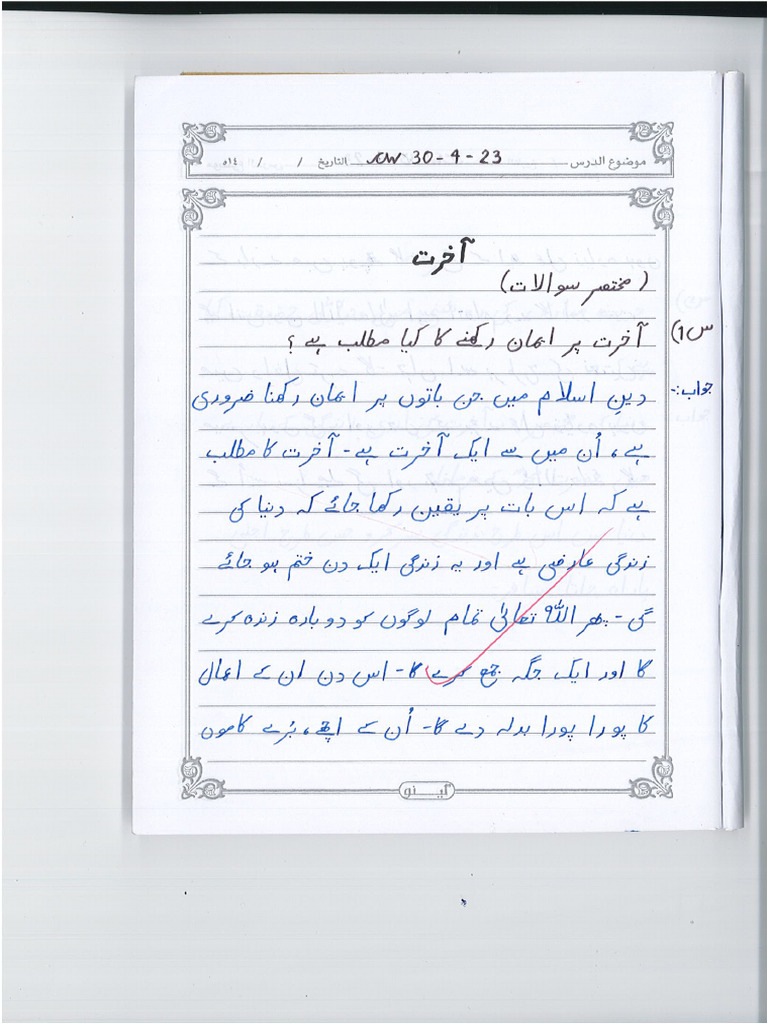 موضوع الدرس CW 30-4-23 التاريخ / / ١٤هـ
آخرت
(مختصر سوالات)
س1) آخرت پر ایمان رکھنے کا کیا مطلب ہے؟
جواب:- دینِ اسلام میں جن باتوں پر ایمان رکھنا ضروری
ہے، اُن میں سے ایک آخرت ہے۔ آخرت کا مطلب
ہے کہ اس بات پر یقین رکھا جائے کہ دنیا کی
زندگی عارضی ہے اور یہ زندگی ایک دن ختم ہو جائے
گی۔ پھر اللّٰہ تعالیٰ تمام لوگوں کو دوبارہ زندہ کرے
گا اور ایک جگہ جمع کرے گا۔ اس دن ان کے اعمال
کا پورا پورا بدلہ دے گا۔ اُن کے اچھے، بُرے کاموں